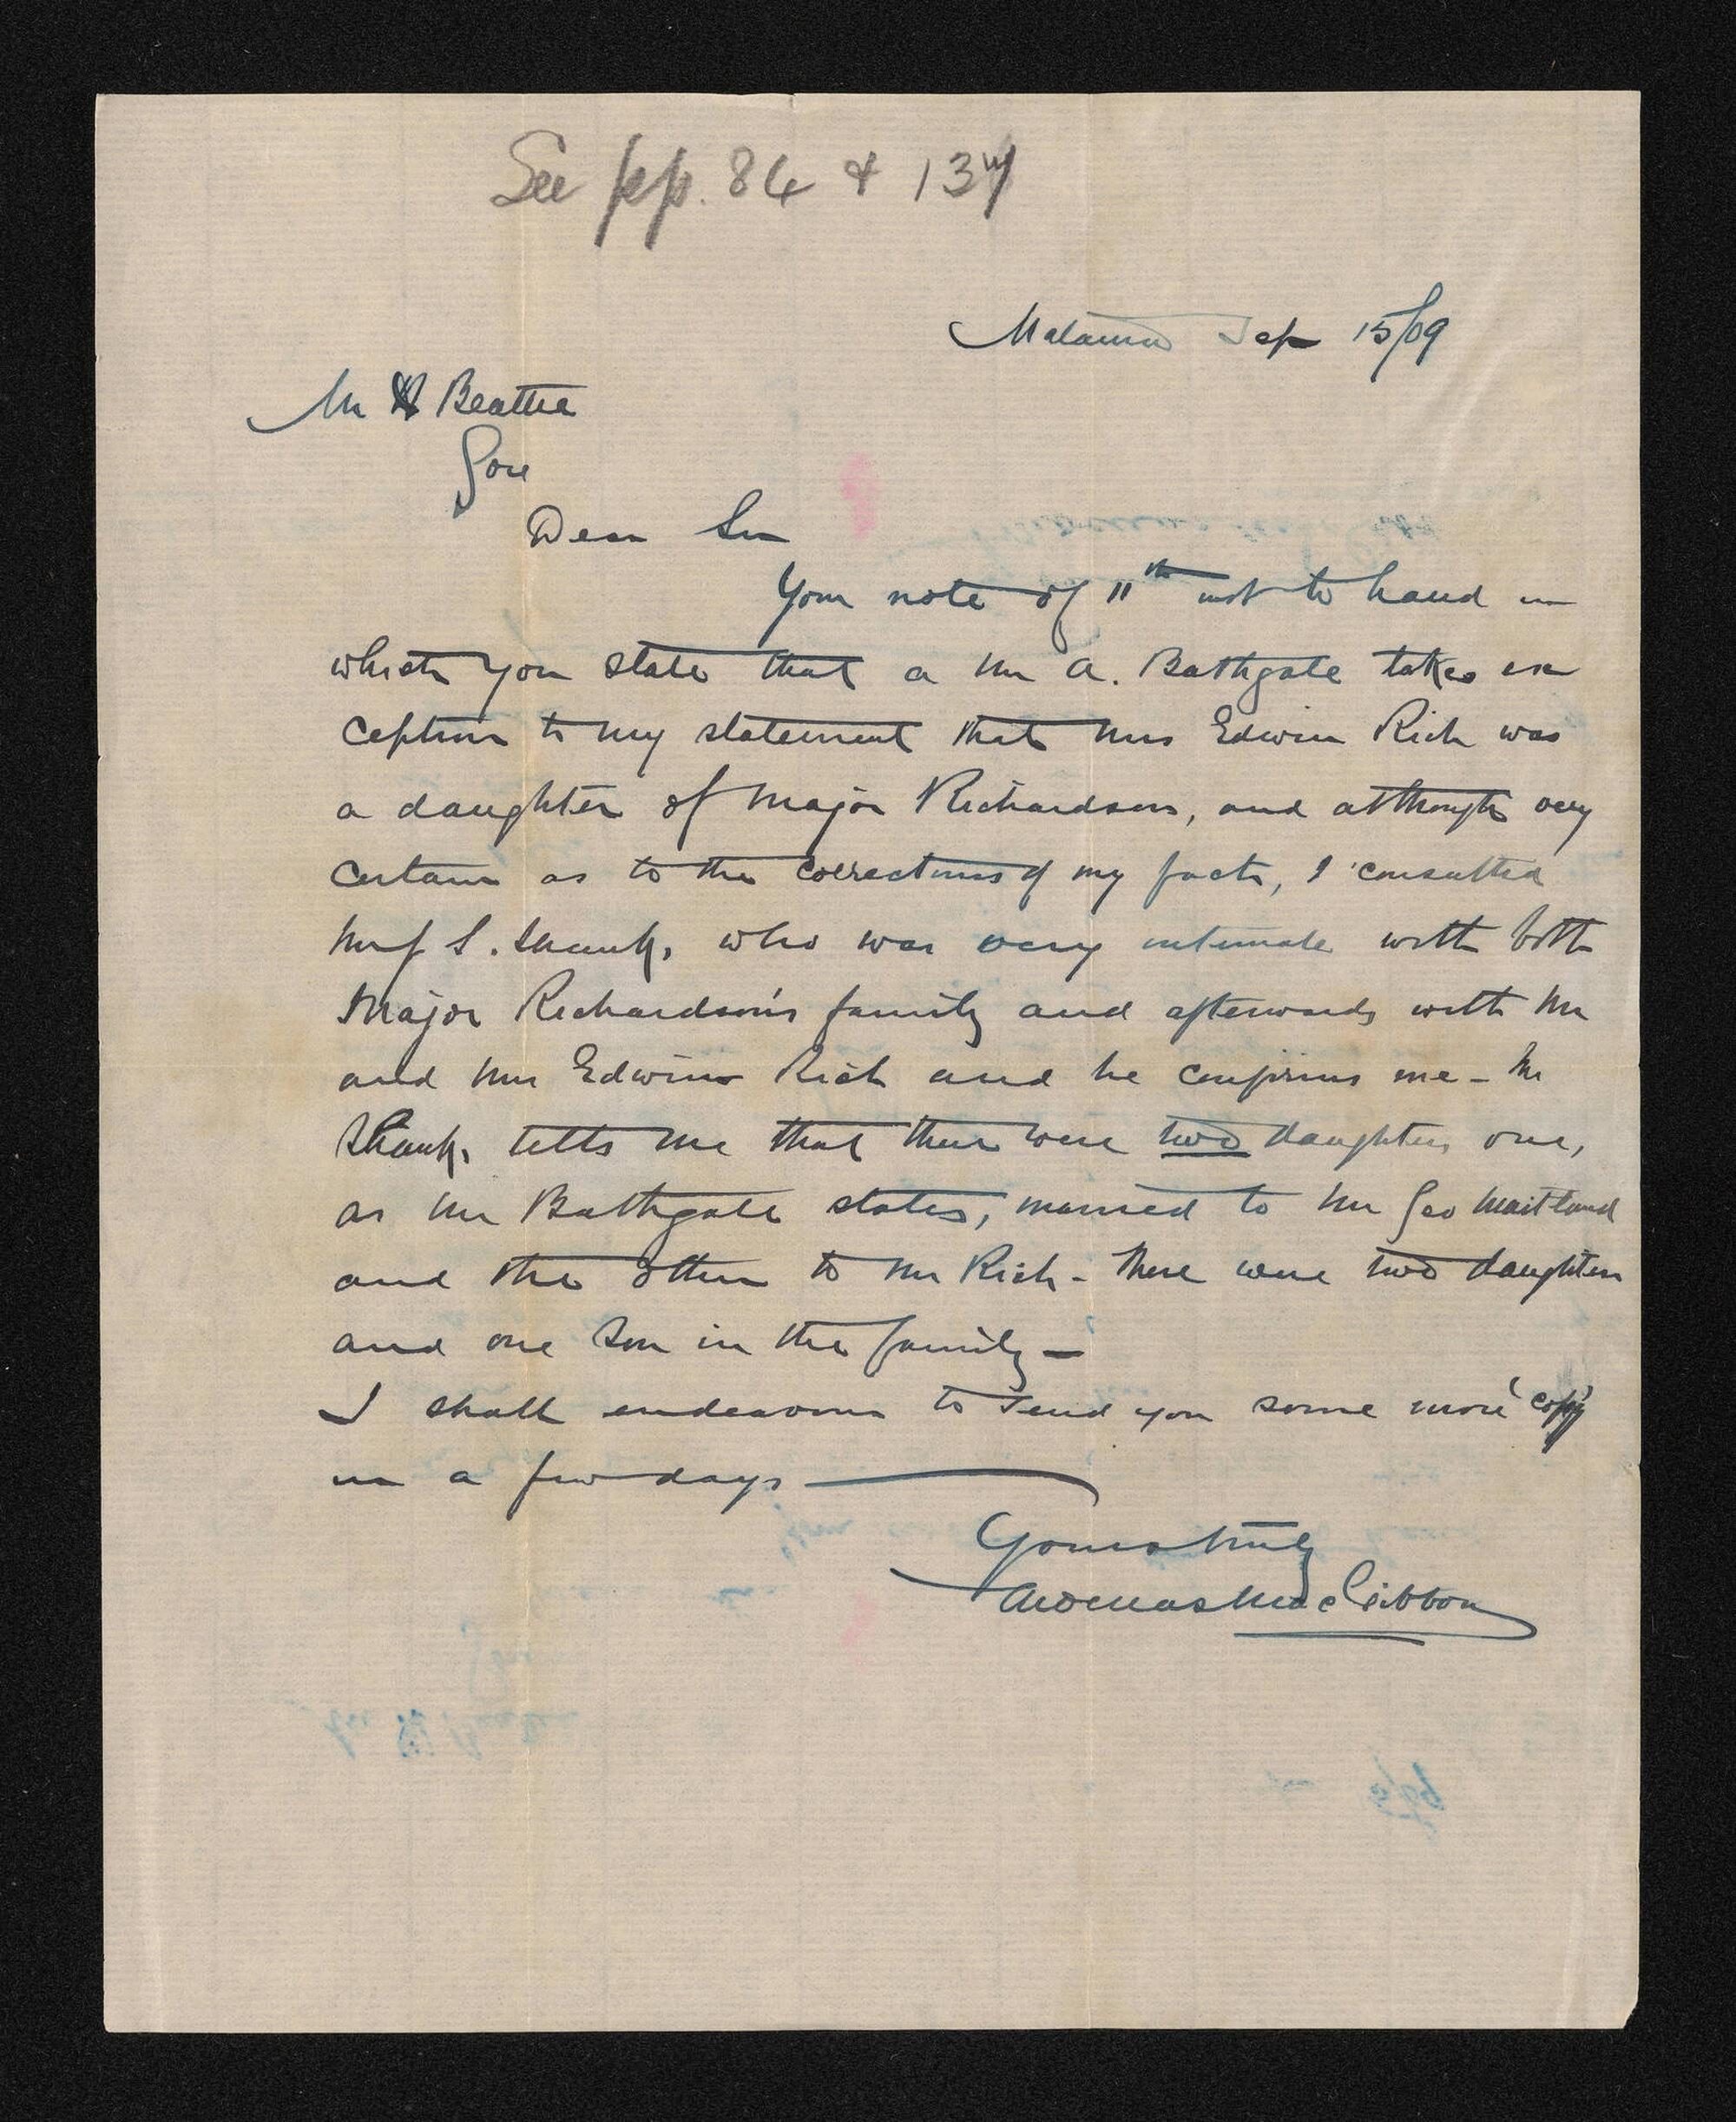 See pp. 84 & 137
Mataura Sep 15/09
Mr Beattie
Gore
Dear Sir
Your note of 11th inst to hand in
which you state that a Mr A. Bathgate takes ex
ception to my statement that Mrs Edwin Rich was
a daughter of Major Richardson, and although very
certain as to the correctness of my facts, I consulted
Mr J S. Shanks, who was very intimate with both
Major Richardson's family and afterwards with Mr
and Mrs Edwin Rich and he confirms me - Mr
Shanks tells me that there were two daughters one,
as Mr Bathgate states, married to Mr Geo Maitland
and the other to Mr Rich - There were two daughters
and one son in the family -
I shall endeavour to send you some more 'copy'
in a few days
Yours truly
Thomas MacGibbon